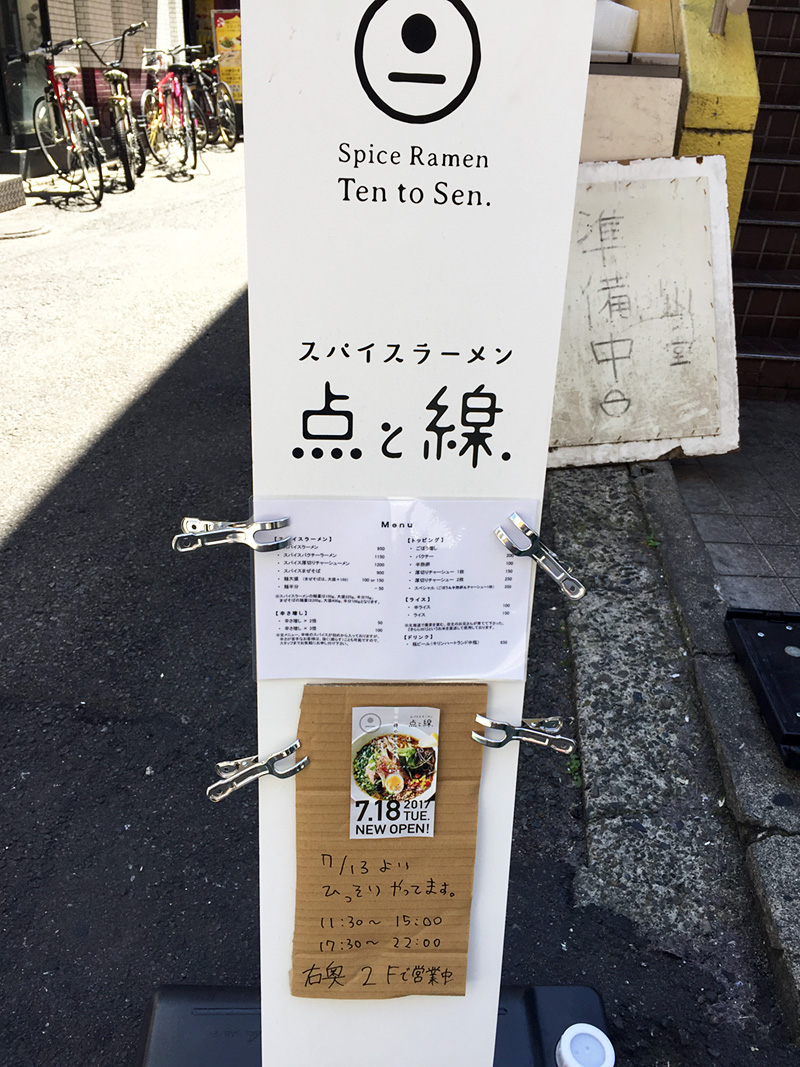 Spice Ramen
Ten to Sen.
スパイスラーメン
点と線.
準備中
Menu
【スパイスラーメン】
・スパイスラーメン
・スパイスパクチーラーメン 1150
・スパイス厚切りチャーシューメン 1200
・スパイスまぜそば 900
・麺大盛 (まぜそばは、大盛+150) 100 or 150
・麺半分 - 50
【辛さ増し】
・辛さ増し × 2倍 50
・辛さ増し × 3倍 100
【トッピング】
・ごぼう増し
・パクチー
・半熟卵 100
・厚切りチャーシュー 1枚 150
・厚切りチャーシュー 2枚 250
【ライス】
・半ライス 100
・ライス 150
【ドリンク】
・瓶ビール(キリンハートランド中瓶)
スパイスラーメン
点と線.
7.18 2017 TUE.
NEW OPEN!
7/13 より
ひっそり やってます。
11:30〜 15:00
17:30〜 22:00
右奥 2Fで営業中